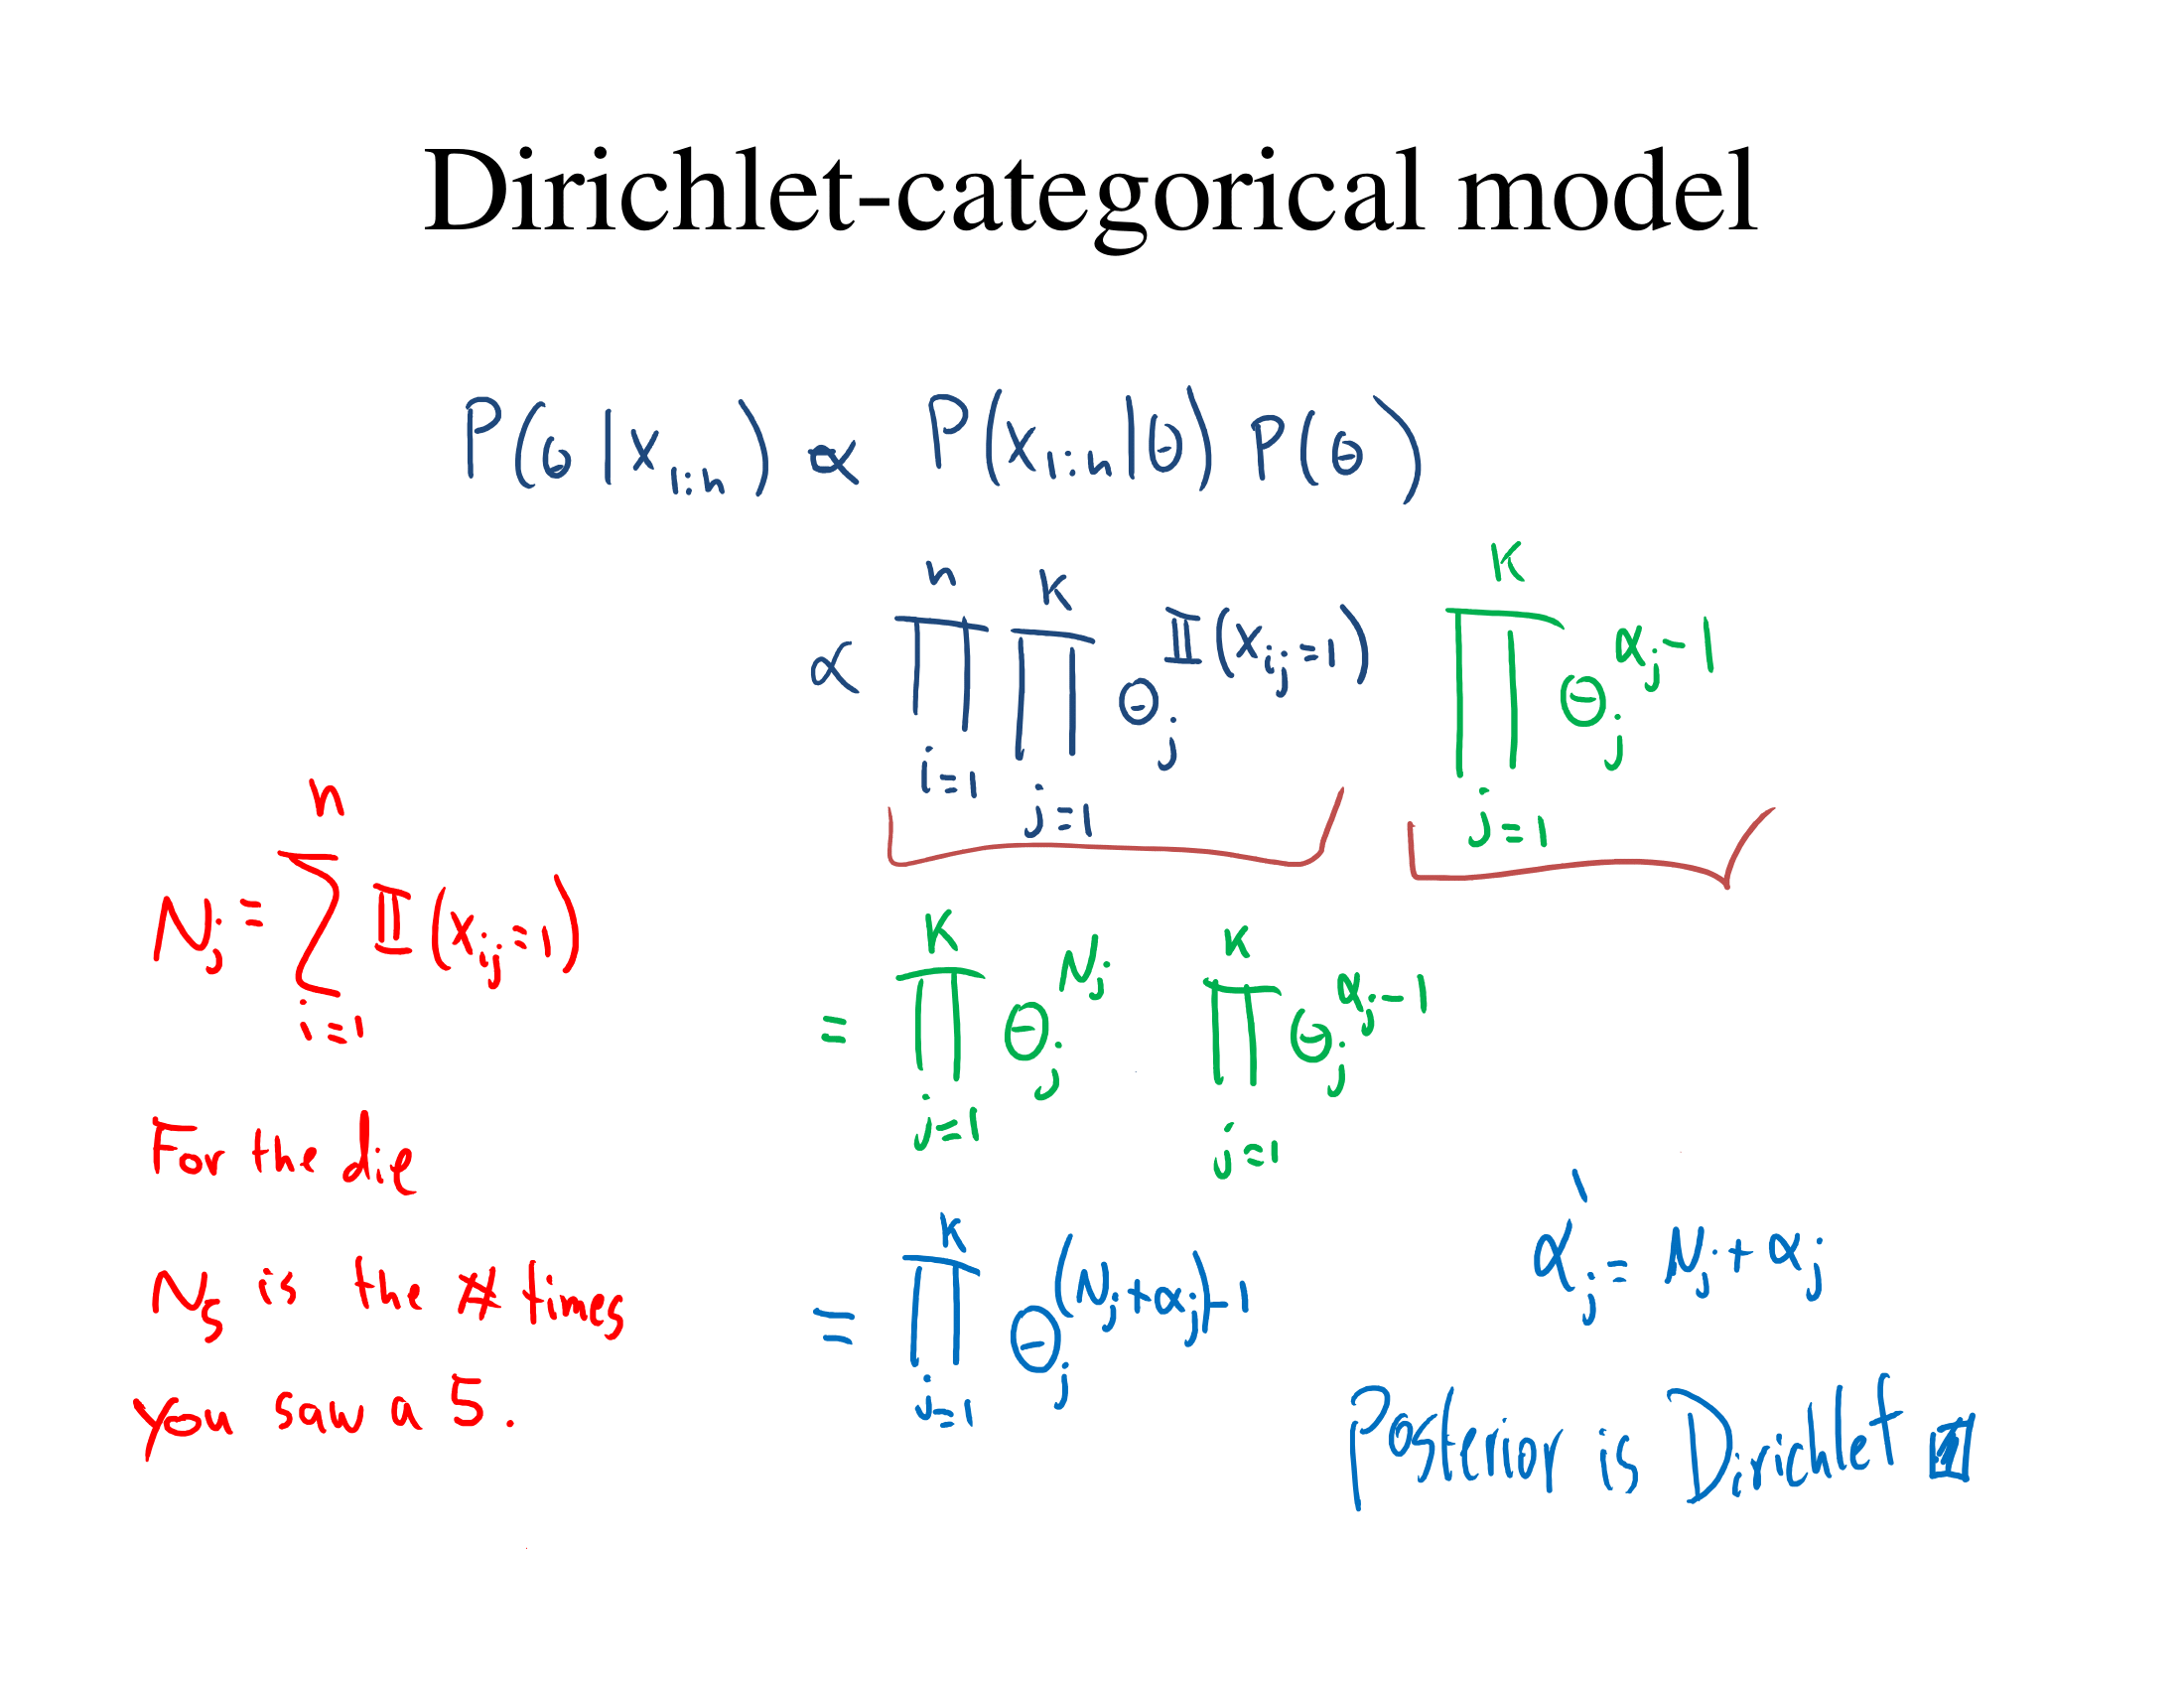 Dirichlet-categorical model
P(θ|x_{1:n}) ∝ P(x_{1:n}|θ) P(θ)
∝ ∏_{i=1}^{n} ∏_{j=1}^{K} θ_j^{𝕀(x_{ij}=1)} ∏_{j=1}^{K} θ_j^{α_j-1}
N_j = ∑_{i=1}^{n} 𝕀(x_{ij}=1)
= ∏_{j=1}^{K} θ_j^{N_j} ∏_{j=1}^{K} θ_j^{α_j-1}
For the die
N_5 is the # times
you saw a 5.
= ∏_{j=1}^{K} θ_j^{(N_j+α_j)-1}
α'_j = N_j + α_j
Posterior is Dirichlet